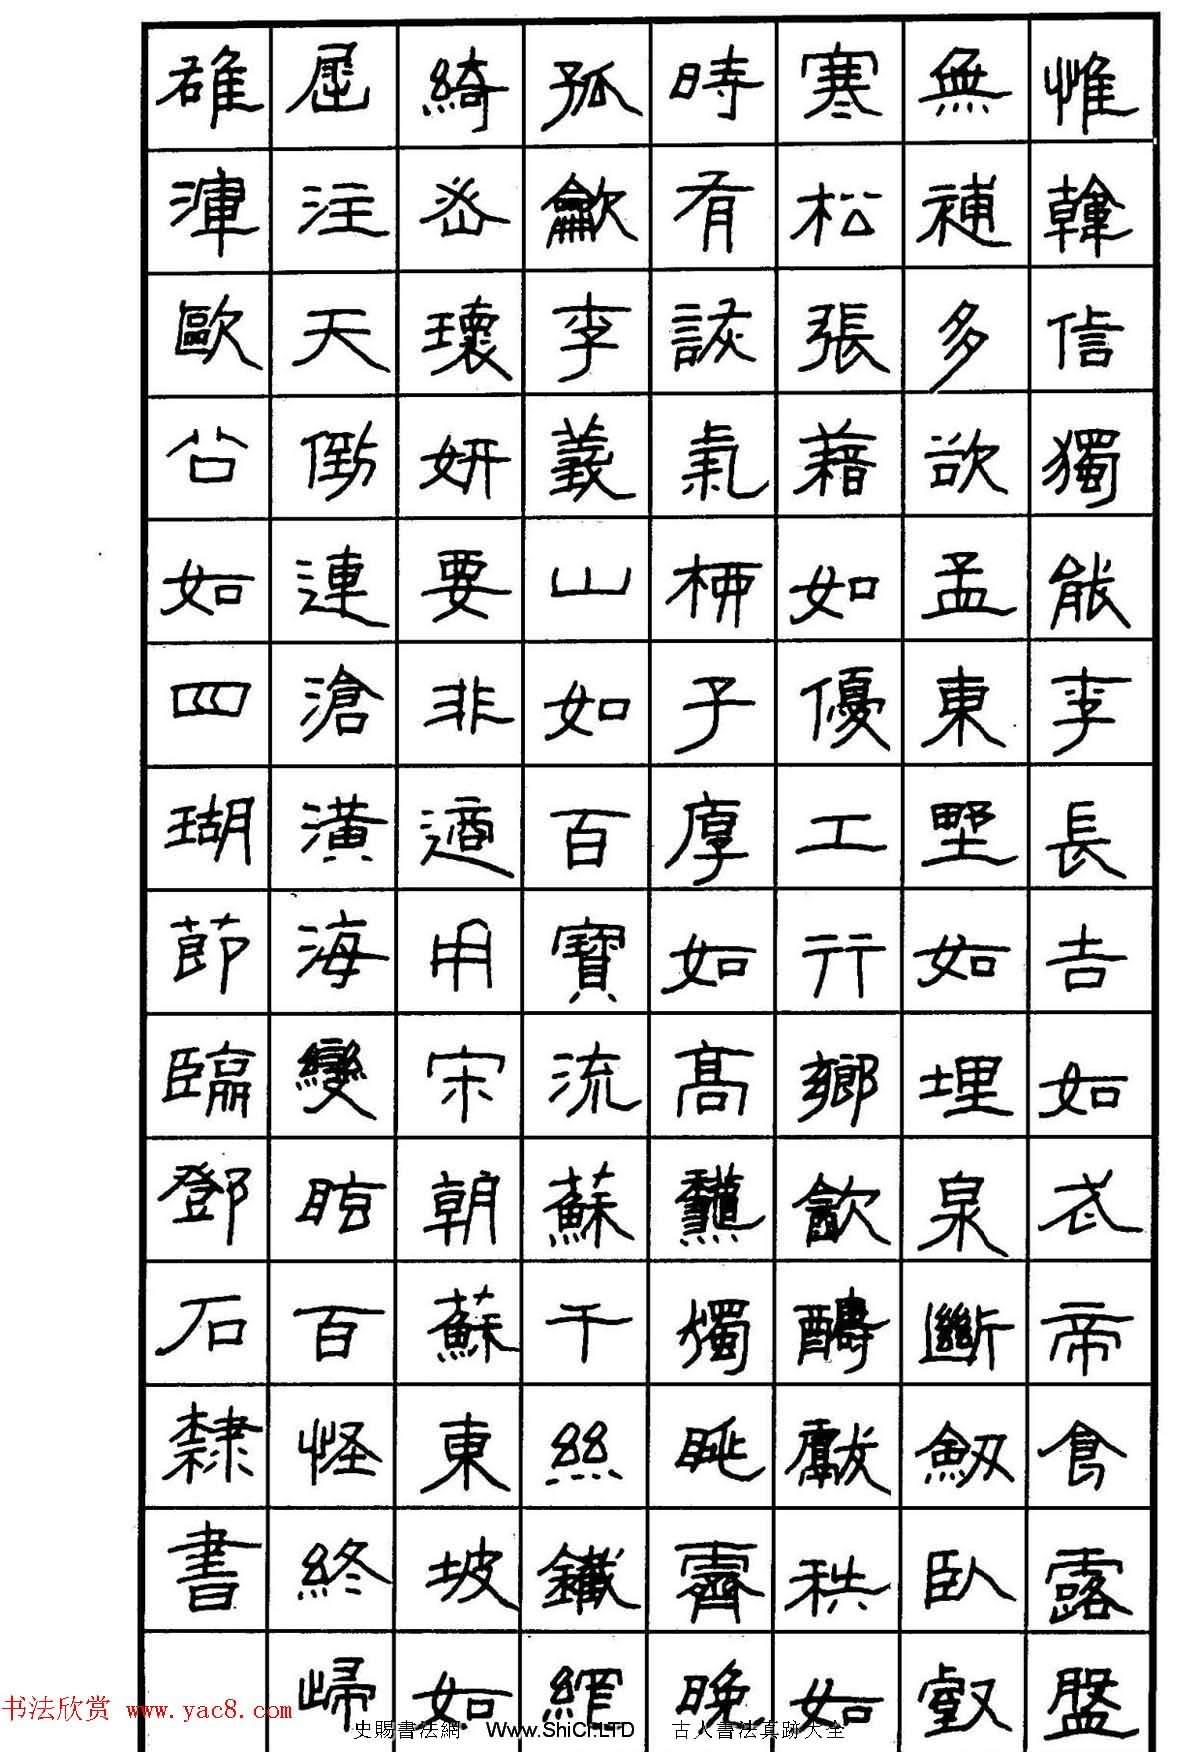 惟韓信獨能李長吉如武帝食露盤
無補多欲孟東野如埋泉斷劔臥壑
寒松張藉如優工行鄉飲醻獻秩如
時有詼氣柳子厚如高龝燭眺霽晚
孤龡李義山如百寶流蘇千絲鐵網
綺密瓌妍要非適用宋朝蘇東坡如
屈注天潢倒連滄海變眩百怪終歸
雄渾歐公如四瑚節臨鄧石隸書
书法欣赏 www.yac8.com
史賜書法網 Www.ShiCi.LTD 古人書法真跡大全